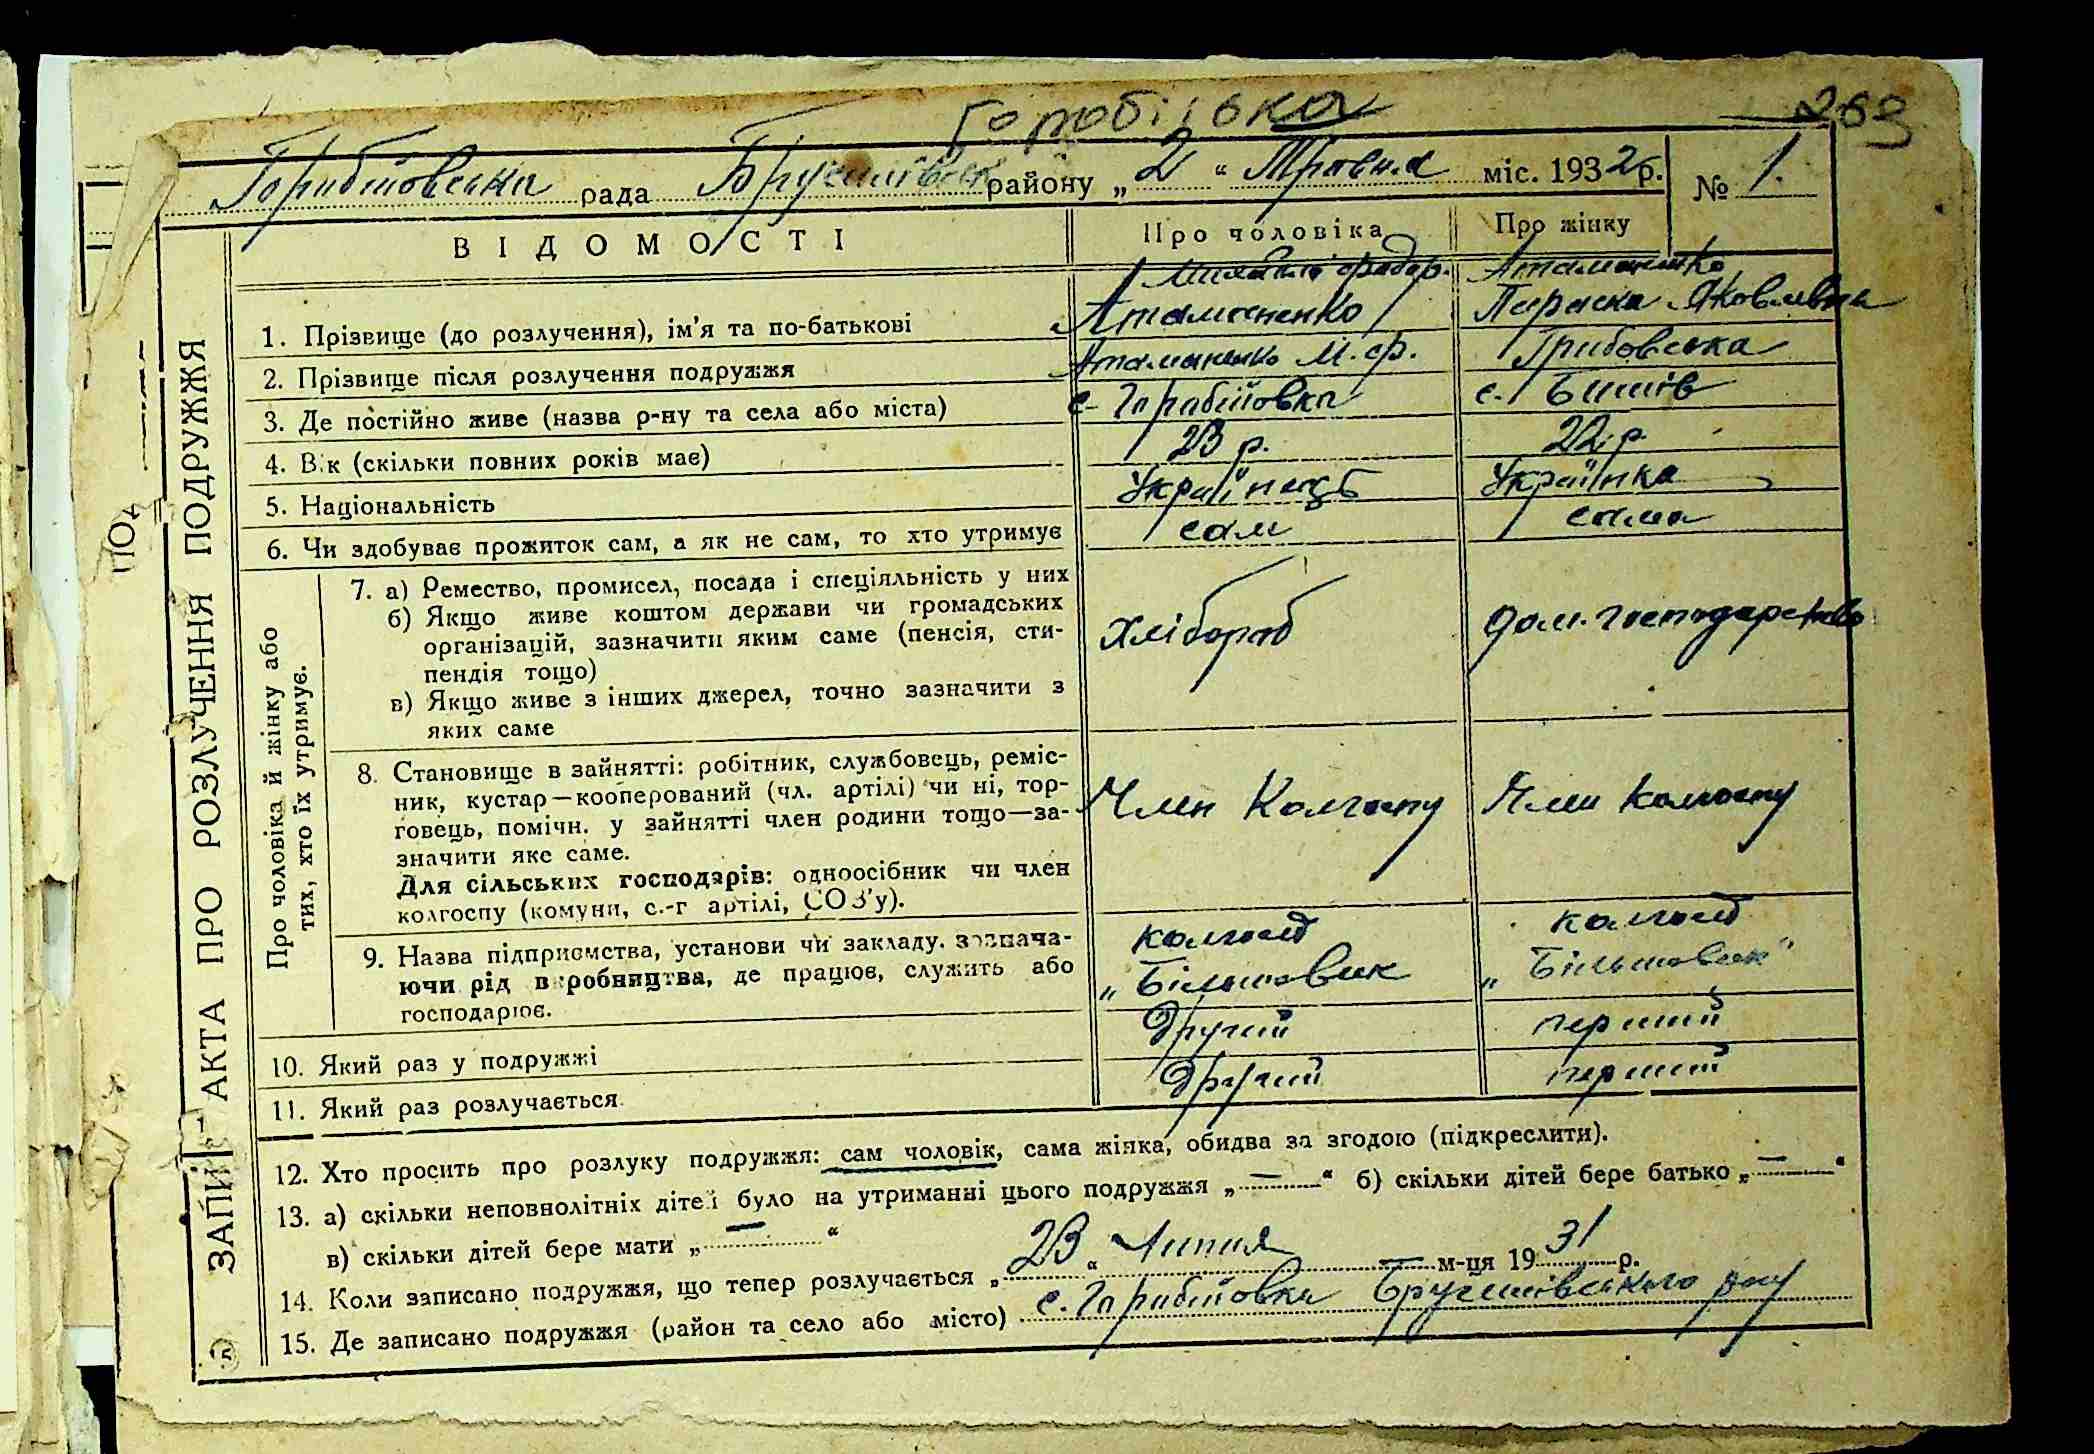 Горобіївка
269
Горабіївська рада Брусилівськ району „2“ Травня міс. 1932р. № 1.
ВІДОМОСТІ Про чоловіка Про жінку
1. Прізвище (до розлучення), ім'я та по-батькові
Атаманенко
Атаманенко Параска Яковлівна
2. Прізвище після розлучення подружжя Атаманенко М. Ф. Грибовська
3. Де постійно живе (назва р-ну та села або міста) с. Горабіївка с.
4. Вік (скільки повних років має) 23 р. 22 р.
5. Національність Українець Українка
6. Чи здобуває прожиток сам, а як не сам, то хто утримує сам сама
Про чоловіка й жінку або
тих, хто їх утримує.
7. а) Ремество, промисел, посада і спеціяльність у них
б) Якщо живе коштом держави чи громадських
організацій, зазначити яким саме (пенсія, сти-
пендія тощо)
в) Якщо живе з інших джерел, точно зазначити з
яких саме
Хлібороб дом. господарство
8. Становище в зайнятті: робітник, службовець, реміс-
ник, кустар—кооперований (чл. артілі) чи ні, тор-
говець, помічн. у зайнятті член родини тощо—за-
значити яке саме.
Для сільських господарів: одноосібник чи член
колгоспу (комуни, с.-г артілі, СОЗ'у).
Член Колгоспу Член Колгоспу
9. Назва підприємства, установи чи закладу. зазнача-
ючи рід виробництва, де працює, служить або
господарює.
колгосп „Більшовик
колгосп „Більшовик“
10. Який раз у подружжі Другий перший
11. Який раз розлучається Другий перший
12. Хто просить про розлуку подружжя: сам чоловік, сама жінка, обидва за згодою (підкреслити).
13. а) скільки неповнолітніх дітей було на утриманні цього подружжя „—“ б) скільки дітей бере батько „—“
в) скільки дітей бере мати „—“
14. Коли записано подружжя, що тепер розлучається „23“ Липня м-ця 1931 р.
15. Де записано подружжя (район та село або місто) с. Горабіївка Брусилівського р-ну
ЗАПИС АКТА ПРО РОЗЛУЧЕННЯ ПОДРУЖЖЯ